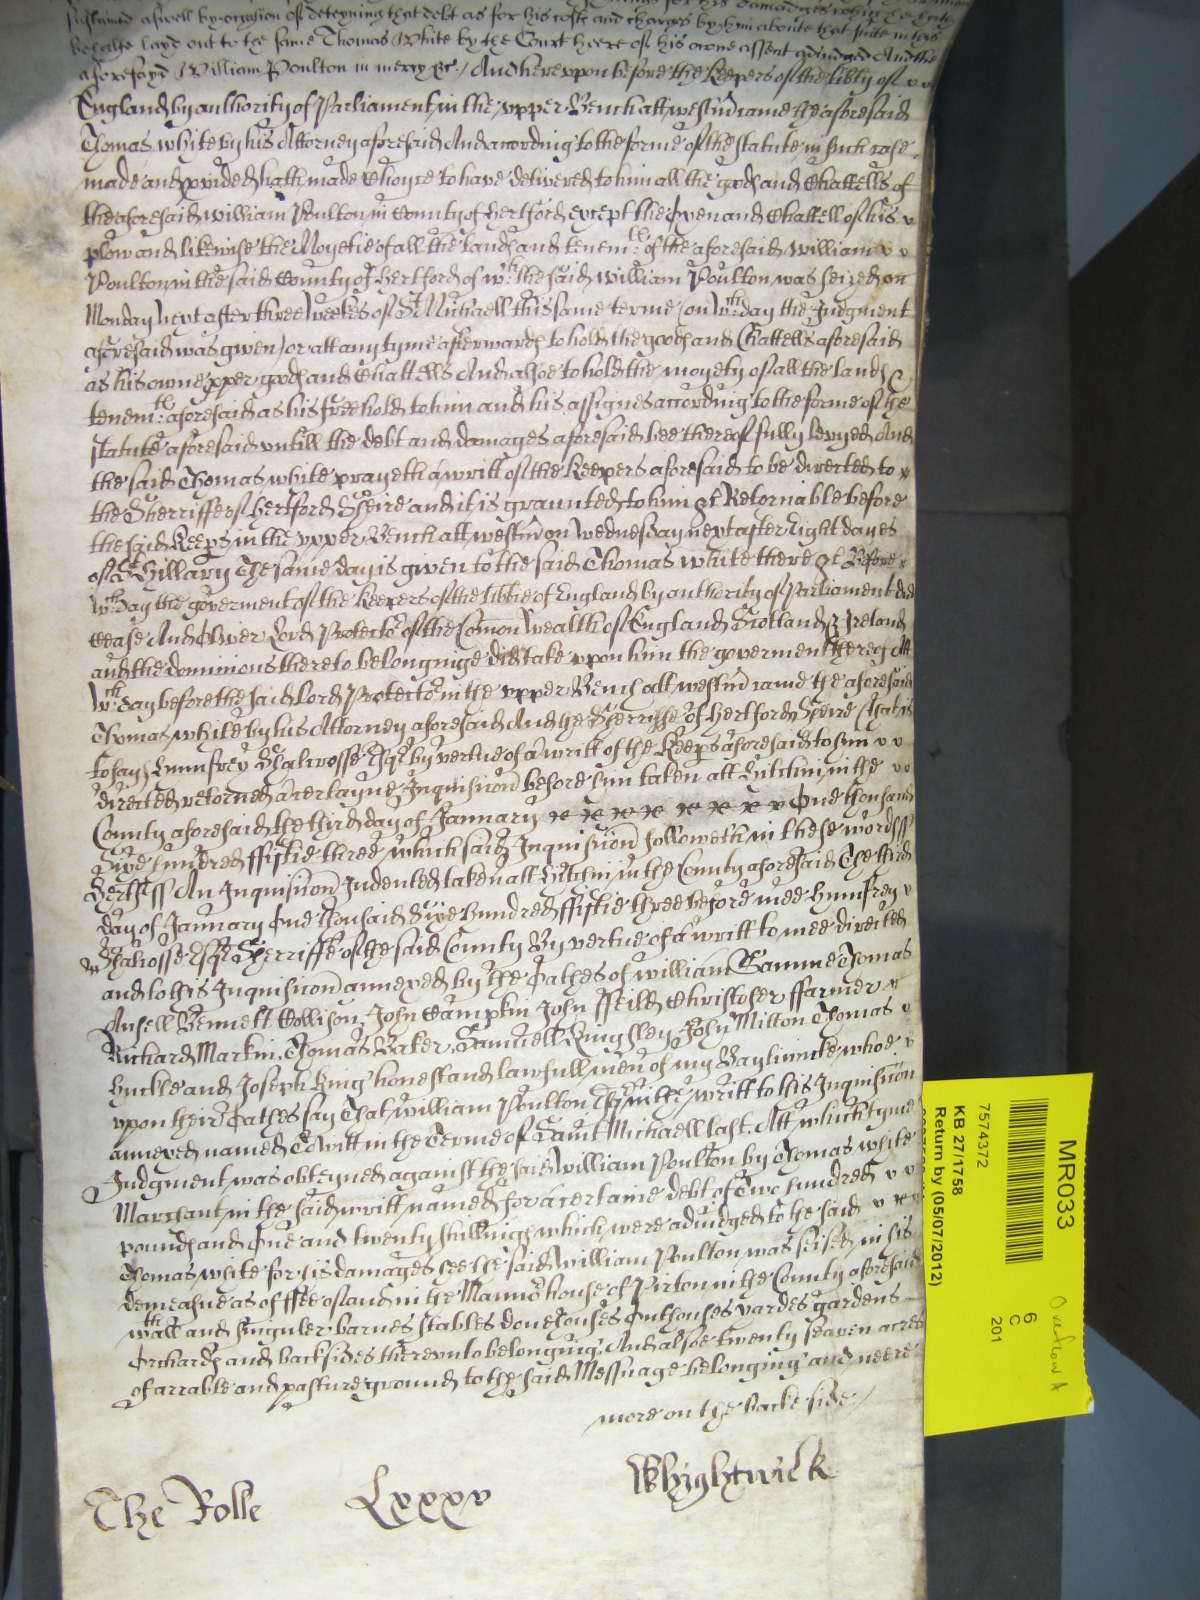 susteyned aswell by occasion of deteyning that debt as for his costs and charges by him aboute that suite in this
behalfe layd out to the same Thomas White by the Court heere of his owne assent adiudged And the
aforesayd William Poulton in mercy &c / And hereupon before the Keepers of the lib̃ty of
England by authority of Parliament in the upper Bench att westm̃ came the aforesaid
Thomas white by his Attorney aforesaid And according to the forme of the statute in such case
made and p̱vided hath made Choyce to have delivered to him all the goods and Chattells of
the aforesaid william Poulton in County of hertford except the Oxen and Chattell of his
plow and likewise the Moyetie of all the lands and tenem:ts of the aforesaid William
Poulton in the said County of hertford of wch the said william Poulton was seized on
Monday next after three Weekes of St Michaell this same terme (on Wch day the Judgment
aforesaid was given) or att any tyme afterwards to hold the goods and Chattells aforesaid
as his owne p̱per goods and Chattells And alsoe to hold the moyety of all the lands &
tenem:ts aforesaid as his freehold to him and his assignes according to the forme of the
statute aforesaid untill the debt and damages aforesaid bee thereof fully levyed And
the said Thomas white prayeth a writt of the Keepers aforesaid to be directed to
the Sherriffe of hertford Sheire and it is graunted to him &c Retornable before
the said Keeps in the upper Bench att westm̃ on Wednesday next after Eight dayes
of St Hillary The same day is given to the said Thomas white there &c Before
Wch day the goverment of the Keepers of the lib̃tie of England by authority of Parliament did
cease And Oliver Lord Protector of the Com̃on Wealth of England Scotland & Ireland
and the dominions thereto belonginge did take upon him the goverment thereof Att
Wch day before the said Lord Protector in the upper Bench att westm̃ came the aforesaid
Thomas white by his Attorney aforesaid And the Sherriffe of hertford Sheire (that is
to say) Humfrey Shalcrosse Esqr by vertue of a writt of the Keeps aforesaid to him
directed retorned a certayne Inquisicõn before him taken att Hitchin in the
County aforesaid the third day of January One thousand
Sixe hundred fiftie three which said Inquisicõn followeth in these words ss
Hertf ss An Inquisicõn Indented taken att Hitchin in the County aforesaid The third
day of January One thousand Sixe hundred fiftie three before mee Humfrey
Shalcrosse Esqr Sherriffe of the said County By vertue of a writt to mee directed
and to this Inquisicõn annexed by the Oathes of william Thomas
Ansell Bennett Collison, John Campkin John ffeild Christofer ffarmer
Richard Markin, Thomas Baker, Samuell Kingsley, John Mitton Thomas
Huckle and Joseph King honest and lawfull men of my Bayliwicke whoe
upon their Oathes say That william Poulton in the writt to this Inquisicõn
annexed named To witt in the Terme of Saint Michaell last Att which tyme
Judgment was obteyned against the said William Poulton by Thomas white
Marchant in the said writt named for a certaine debt of Two hundred
pounds and One and twenty shillings which were adiudged to the said
Thomas white for his damages hee the said William Poulton was seised in his
demeasne as of ffee of and in the Mannor house of Pirton in the County aforesaid
wth all and singuler barnes stables dovehouses Outhouses yardes gardens
Orchards and backsides thereunto belonging, And alsoe twenty seaven acres
of arrable and pasture ground to the said Messuage belonging and neere
more on the backe side /
The Rolle Lxxxv Whightwick
MR033
7574372
KB 27/1758
Return by (05/07/2012)
6
C
201